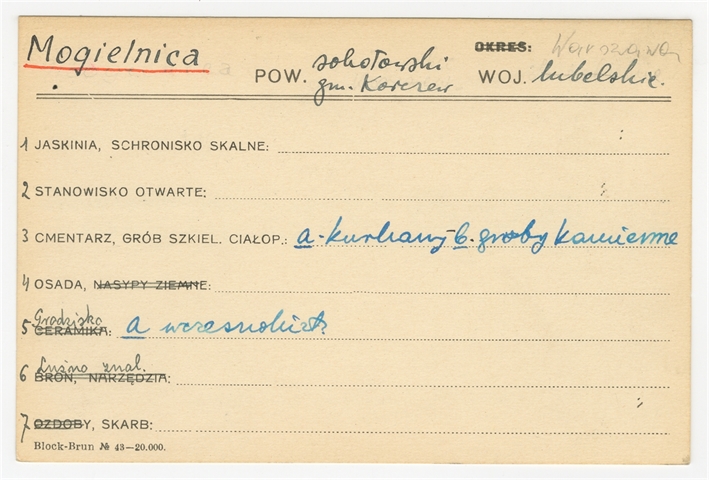 Mogielnica OKRES: Warszawa
POW. sokołowski WOJ. lubelskie.
gm. Korczew
1 JASKINIA, SCHRONISKO SKALNE:
2 STANOWISKO OTWARTE:
3 CMENTARZ, GRÓB SZKIEL. CIAŁOP.: a-kurhany-b. groby kamienne
4 OSADA, NASYPY ZIEMNE:
Grodzisko
5 CERAMIKA: a wczesnohist.
Luźno znal.
6 BROŃ, NARZĘDZIA:
7 OZDOBY, SKARB:
Block-Brun № 43—20.000.